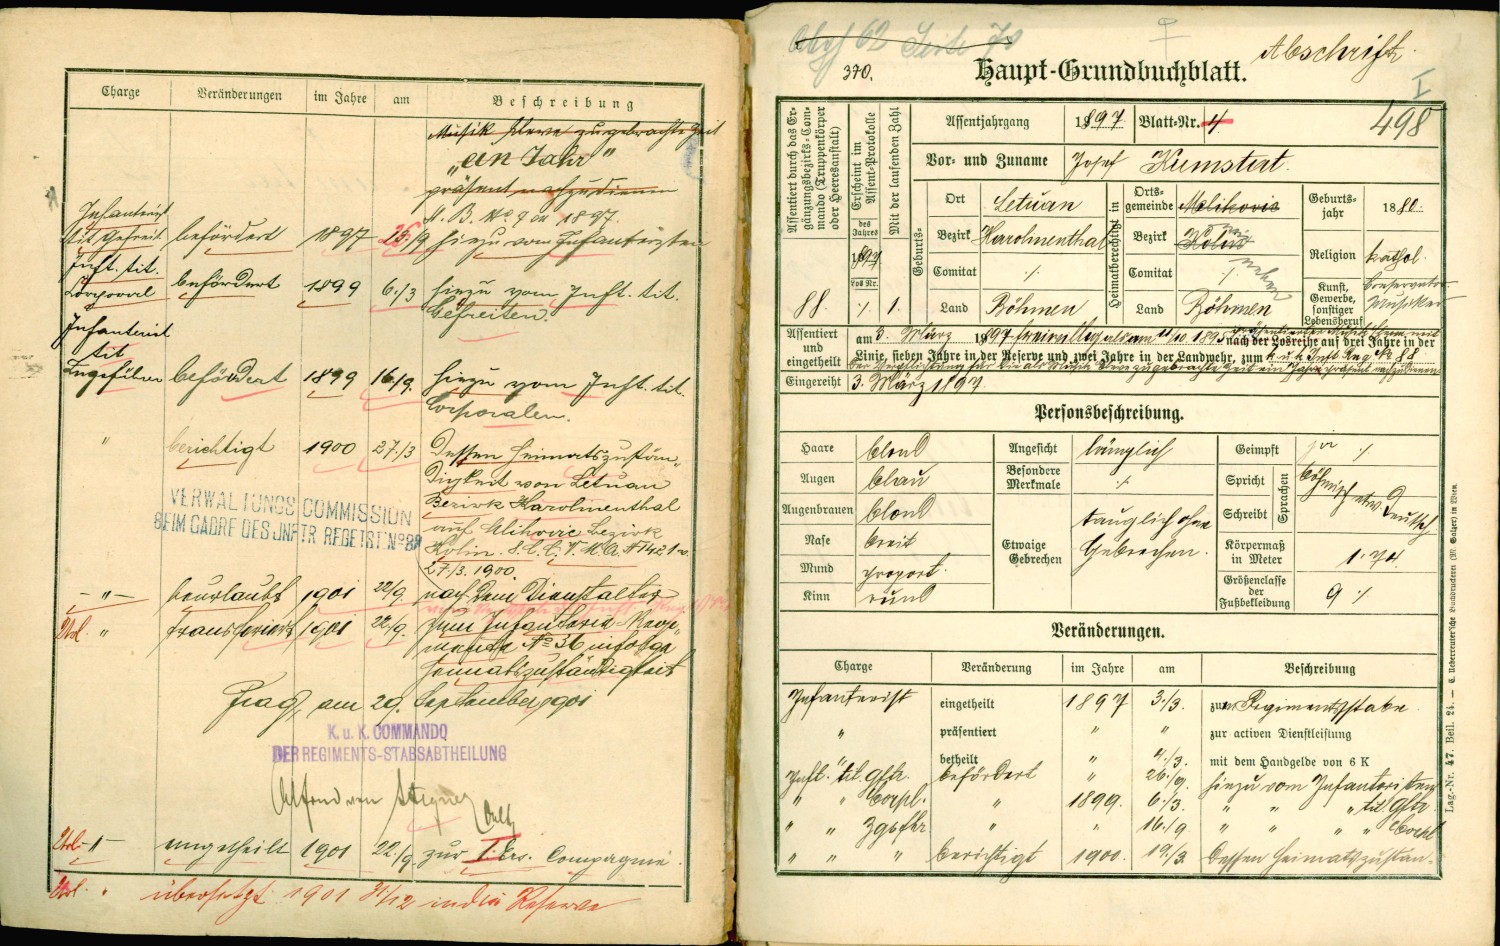 Charge Veränderungen im Jahre am Beschreibung
Musik Eleve zugebrachte Zeit
"ein Jahr"
präsent nachzudienen
A. B. No 9 ex 1897.
Infanterist
tit. Gefreit. befördert 1897 26/9 hiezu vom Infanteristen
Inft. tit.
Corporal befördert 1899 6./3 hiezu vom Inft. tit.
Gefreiten.
Infanterist
tit.
Zugsführer befördert 1899 16/9. hiezu vom Inft. tit.
Corporalen.
" berichtigt 1900 27./3 Dessen Heimatszustän„
digkeit von Letnan
Bezirk Karolinenthal
auf Bezirk
Kolin.
27./3. 1900.
VERWALTUNGS COMMISSION
BEIM CADRE DES INFTR REGETS No 88
- " - beurlaubt 1901 22/9. nach dem Dienstalter
" transferirt 1901 22./9. zum Infanterie-Regi„
mente No 36 infolge
Heimatszuständigkeit
Prag, am 29. September 1901
K. u. K. COMMANDO
DER REGIMENTS-STABSABTHEILUNG
Oblt
" - eingetheilt 1901 22./9. zur Ers. Compagnie.
" übersetzt 1901 31/12 in die Reserve
62 Seite 70
Abschrift.
370.
Haupt-Grundbuchblatt.
I
498
Assentiert durch das Ergänzungsbezirks-Commando (Truppenkörper oder Heeresanstalt)
88.
Erscheint im Assent-Protokolle
des Jahres
1897
Los Nr.
·/.
Mit der laufenden Zahl
1.
Assentjahrgang 1897 Blatt-Nr. 4
Vor- und Zuname Josef Kumstat.
Geburts-
Ort Letnan
Bezirk Karolinenthal
Comitat ·/.
Land Böhmen
Heimatberechtigt in
Ortsgemeinde
Bezirk Kolin
Comitat ·/.
Land Böhmen
Geburtsjahr 1880.
Religion kathol.
Kunst, Gewerbe, sonstiger Lebensberuf Musiker
Assentiert und eingetheilt
am 3. März 1897
nach der Losreihe auf drei Jahre in der
Linie, sieben Jahre in der Reserve und zwei Jahre in der Landwehr, zum k. u. k. Inft. Reg. No 88
Eingereiht 3. März 1897.
Personsbeschreibung.
Haare blond
Augen blau
Augenbrauen blond
Nase breit
Mund proport.
Kinn rund
Angesicht länglich
Besondere Merkmale ·/.
Etwaige Gebrechen tauglich ohne
Gebrechen.
Geimpft ja ·/.
Spricht
Schreibt
Sprachen
böhmisch etw. Deutsch
Körpermaß in Meter 1·74.
Größenclasse der Fußbekleidung 9 ·/.
Veränderungen.
Charge Veränderung im Jahre am Beschreibung
Infanterist eingetheilt 1897 3./3. zum Regimentsstabe
" präsentiert " " zur activen Dienstleistung
" betheilt 4./3. mit dem Handgelde von 6 K
Inft. tit. Gftr. befördert " 26./9. hiezu vom Infanteristen
" " Corpl. " 1899. 6./3. " " " tit. Gftr.
" " Zgsfhr " " 16./9 " " " " Corpl
" " " berichtigt 1900. 19./3. Dessen Heimatszustän-
Lag.-Nr. 47. Beil. 24. — C. Ueberreuter'sche Buchdruckerei (M. Salzer) in Wien.